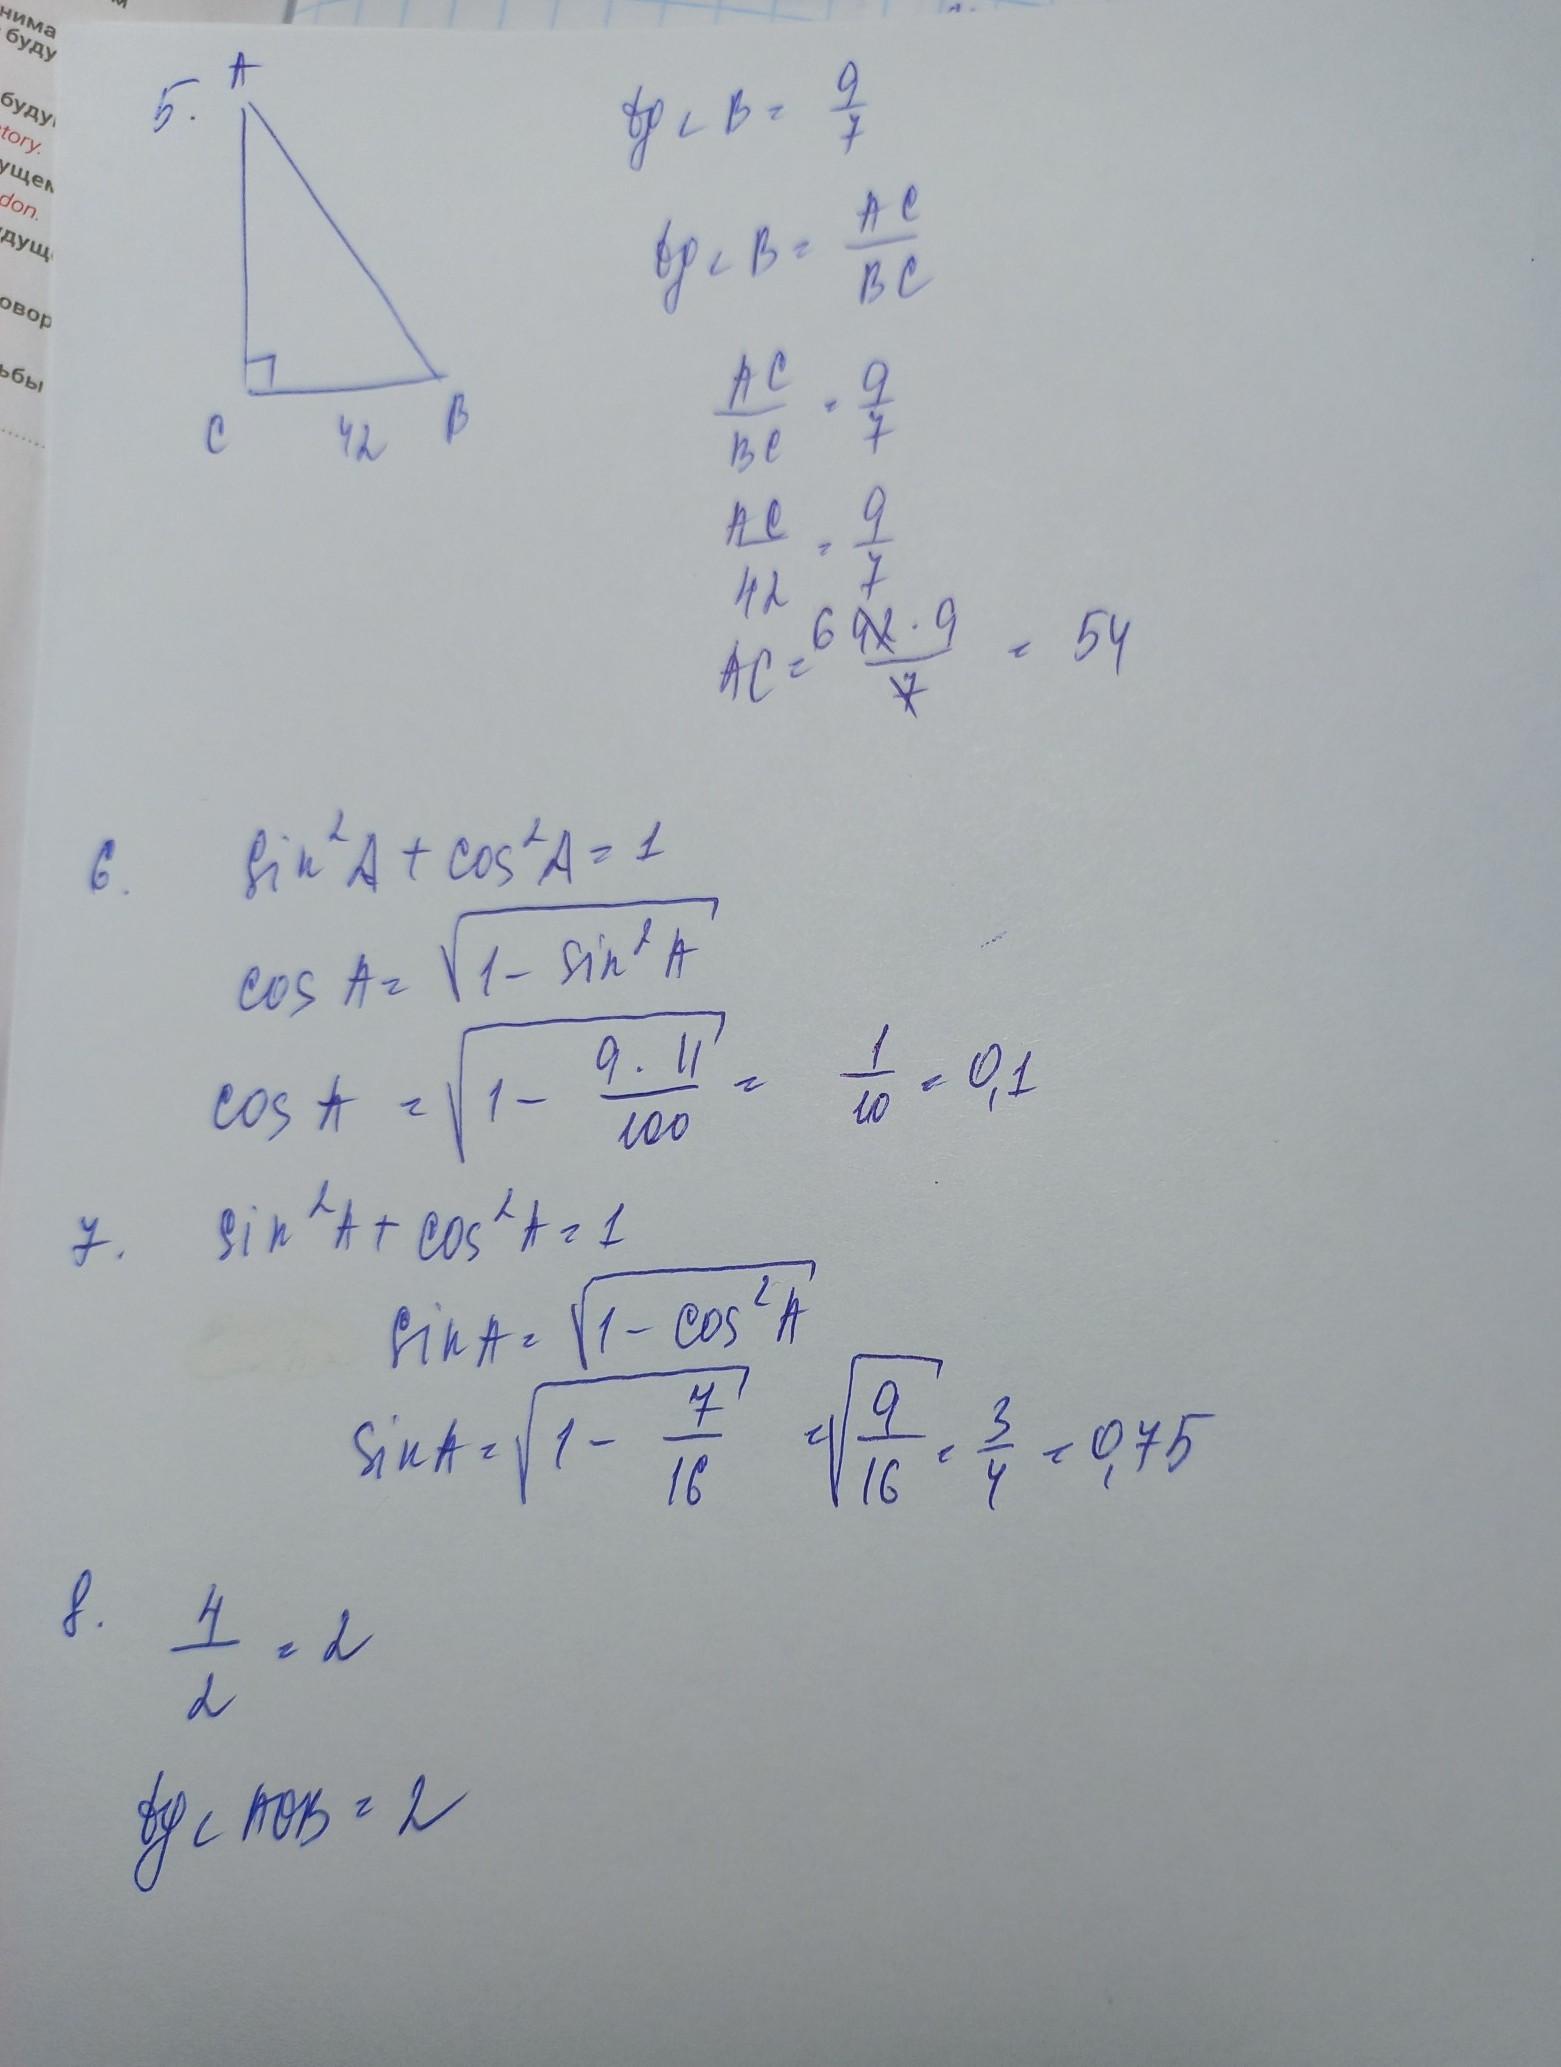 нима
буду
буду
tory.
ущем
don.
дущ
овор
ьбы
5.
A
C
42
B
tg < B = 9/7
tg < B = AC/BC
AC/BC = 9/7
AC/42 = 9/7
AC = 6 42 · 9/7 = 54
6.
sin²A + cos²A = 1
cos A = √(1 - sin²A)
cos A = √(1 - 9·11/100) = 1/10 = 0,1
7.
sin²A + cos²A = 1
sin A = √(1 - cos²A)
sin A = √(1 - 7/16) = √(9/16) = 3/4 = 0,75
8.
4/2 = 2
tg < AOB = 2